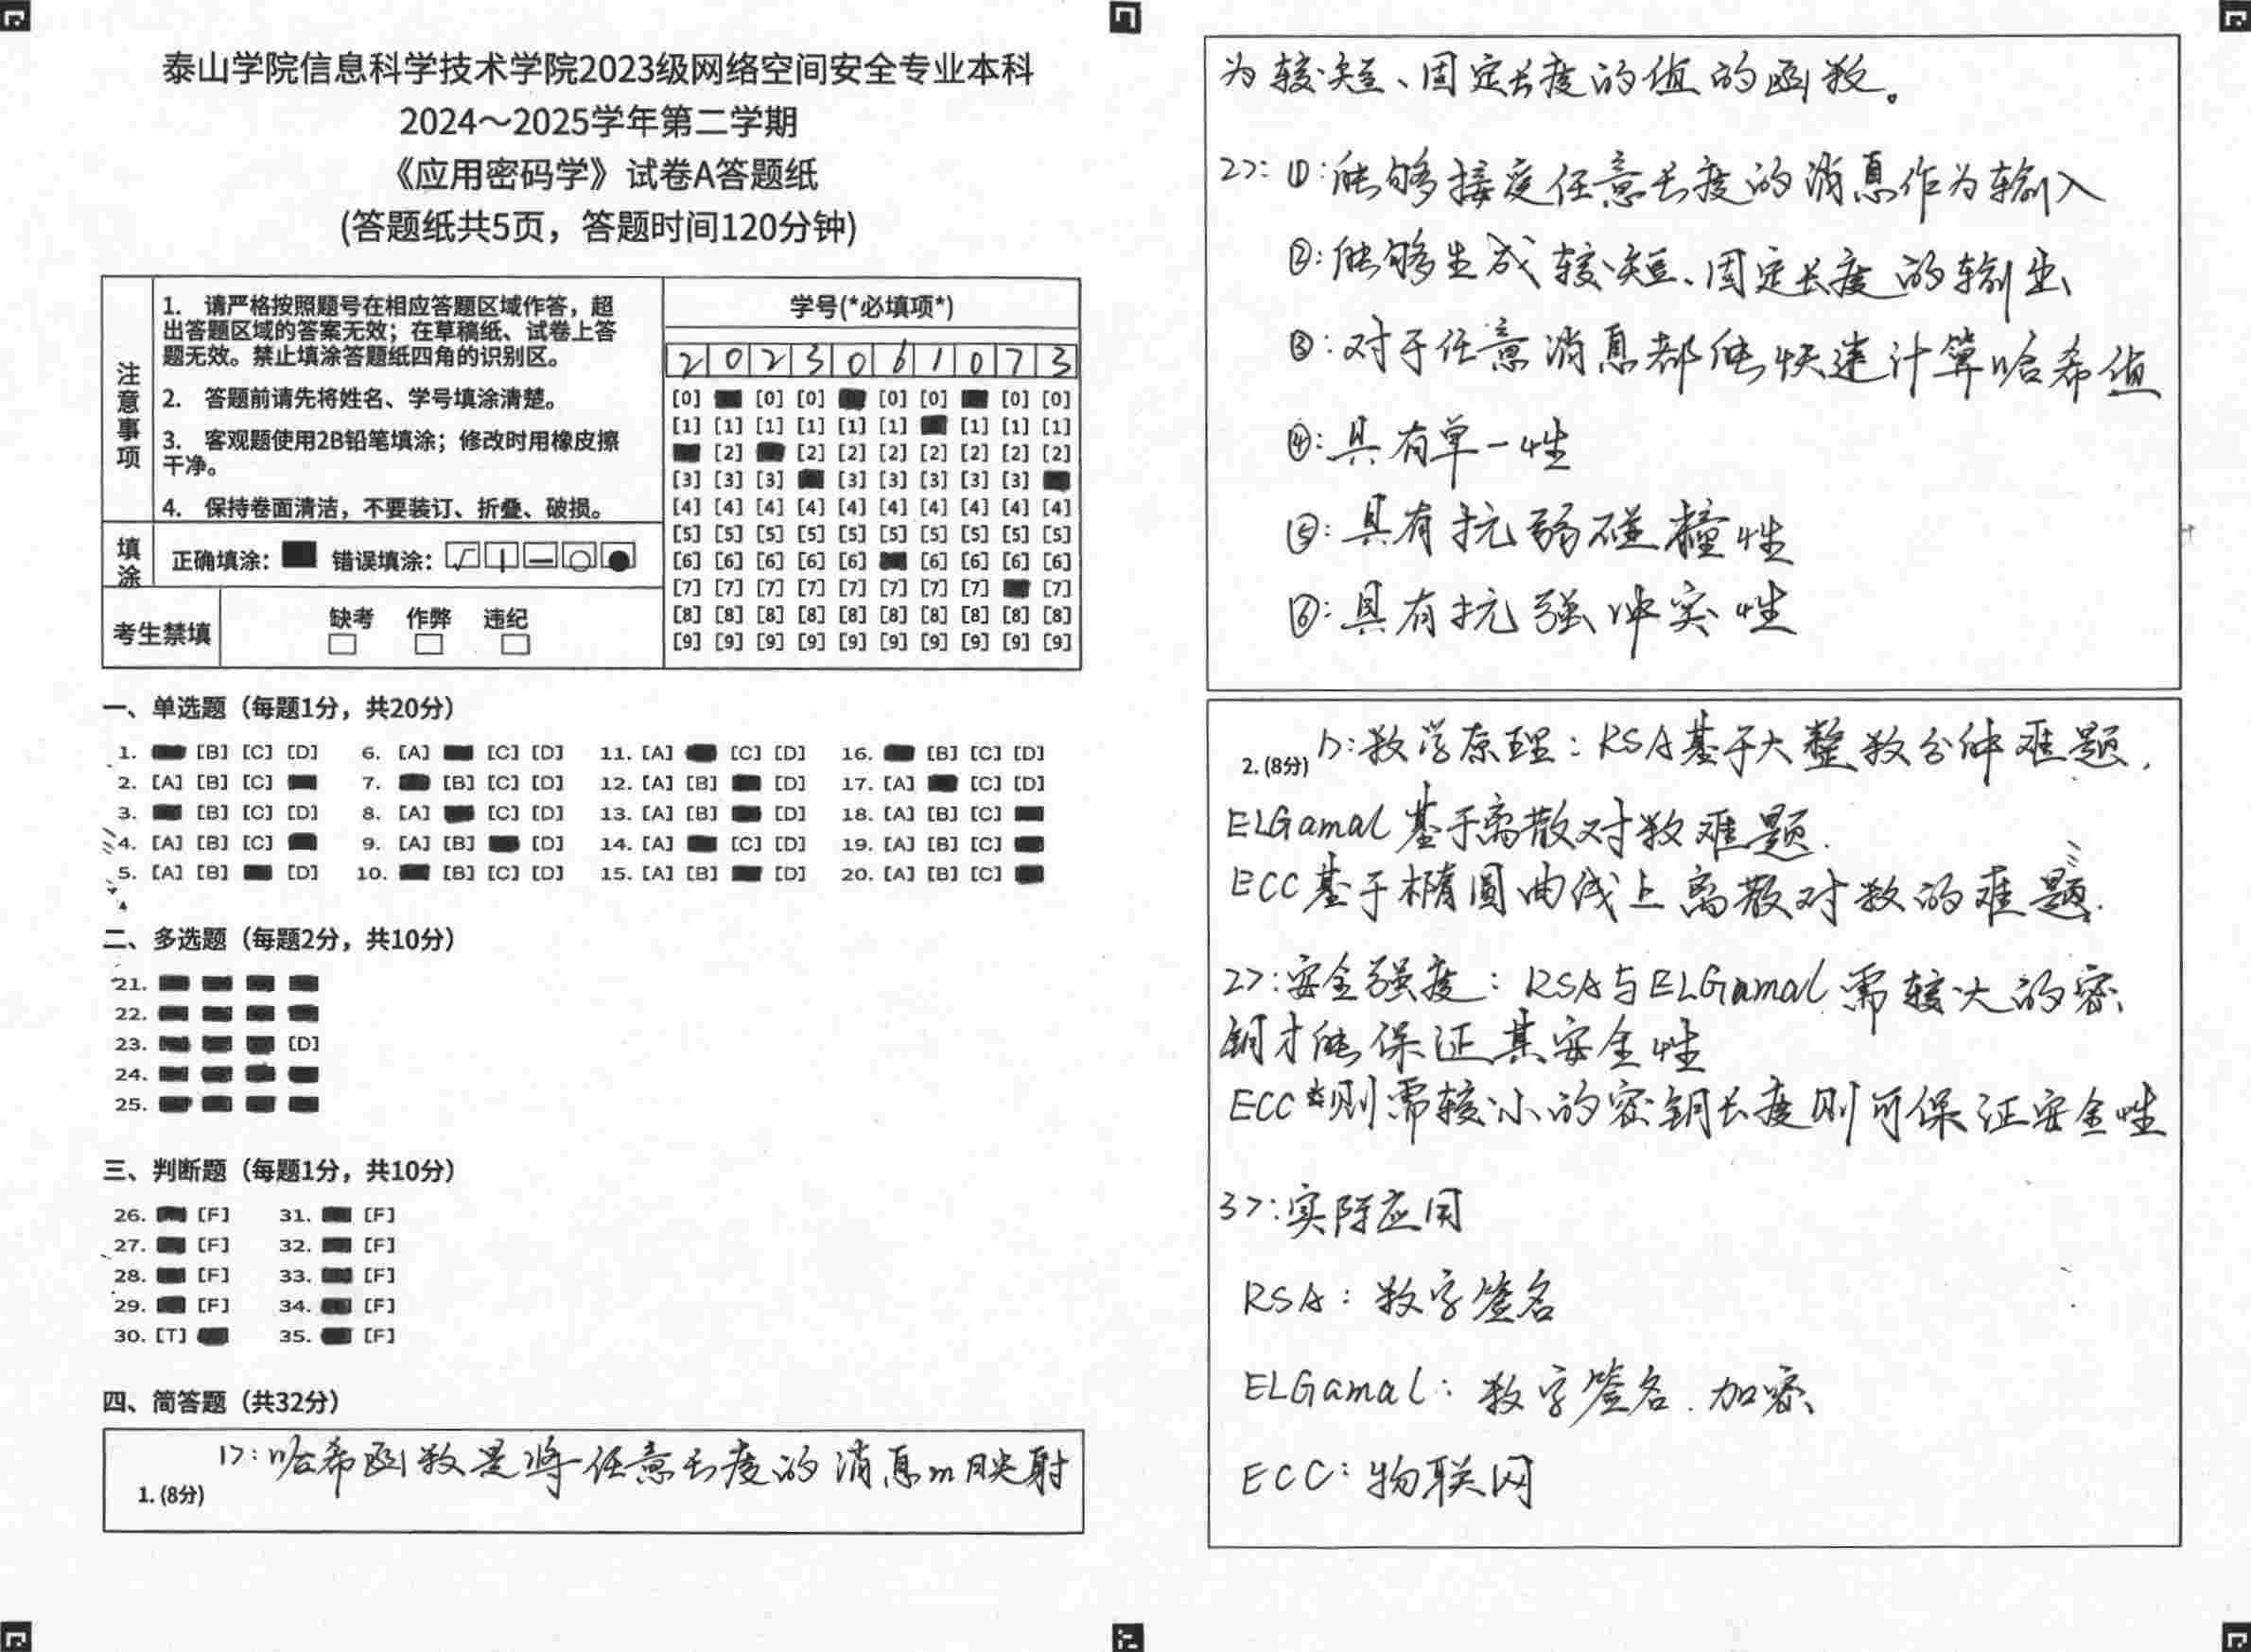 泰山学院信息科学技术学院2023级网络空间安全专业本科
2024～2025学年第二学期
《应用密码学》试卷A答题纸
(答题纸共5页，答题时间120分钟)
注意事项
1. 请严格按照题号在相应答题区域作答，超
出答题区域的答案无效；在草稿纸、试卷上答
题无效。禁止填涂答题纸四角的识别区。
2. 答题前请先将姓名、学号填涂清楚。
3. 客观题使用2B铅笔填涂；修改时用橡皮擦
干净。
4. 保持卷面清洁，不要装订、折叠、破损。
填涂
正确填涂： 错误填涂：
考生禁填
缺考 作弊 违纪
学号(*必填项*)
2 0 2 3 0 6 1 0 7 3
[0] [0] [0] [0] [0] [0] [0]
[1] [1] [1] [1] [1] [1] [1] [1] [1]
[2] [2] [2] [2] [2] [2] [2] [2]
[3] [3] [3] [3] [3] [3] [3] [3]
[4] [4] [4] [4] [4] [4] [4] [4] [4] [4]
[5] [5] [5] [5] [5] [5] [5] [5] [5] [5]
[6] [6] [6] [6] [6] [6] [6] [6] [6]
[7] [7] [7] [7] [7] [7] [7] [7] [7]
[8] [8] [8] [8] [8] [8] [8] [8] [8] [8]
[9] [9] [9] [9] [9] [9] [9] [9] [9] [9]
一、单选题（每题1分，共20分）
1. [B] [C] [D] 6. [A] [C] [D] 11. [A] [C] [D] 16. [B] [C] [D]
2. [A] [B] [C] 7. [B] [C] [D] 12. [A] [B] [D] 17. [A] [C] [D]
3. [B] [C] [D] 8. [A] [C] [D] 13. [A] [B] [D] 18. [A] [B] [C]
4. [A] [B] [C] 9. [A] [B] [D] 14. [A] [C] [D] 19. [A] [B] [C]
5. [A] [B] [D] 10. [B] [C] [D] 15. [A] [B] [D] 20. [A] [B] [C]
二、多选题（每题2分，共10分）
21.
22.
23. [D]
24.
25.
三、判断题（每题1分，共10分）
26. [F] 31. [F]
27. [F] 32. [F]
28. [F] 33. [F]
29. [F] 34. [F]
30. [T] 35. [F]
四、简答题（共32分）
1>:哈希函数是将任意长度的消息m映射
1. (8分)
为较短、固定长度的值的函数。
2>: ①:能够接受任意长度的消息作为输入
②:能够生成较短、固定长度的输出
③:对于任意消息都能快速计算哈希值
④:具有单一性
⑤:具有抗弱碰撞性
⑥:具有抗强冲突性
2. (8分) 1>:数学原理：RSA基于大整数分解难题.
ELGamal基于离散对数难题.
ECC基于椭圆曲线上离散对数的难题.
2>:安全强度：RSA与ELGamal需较大的密
钥才能保证其安全性
ECC则需较小的密钥长度则可保证安全性
3>:实际应用
RSA：数字签名
ELGamal：数字签名.加密
ECC：物联网